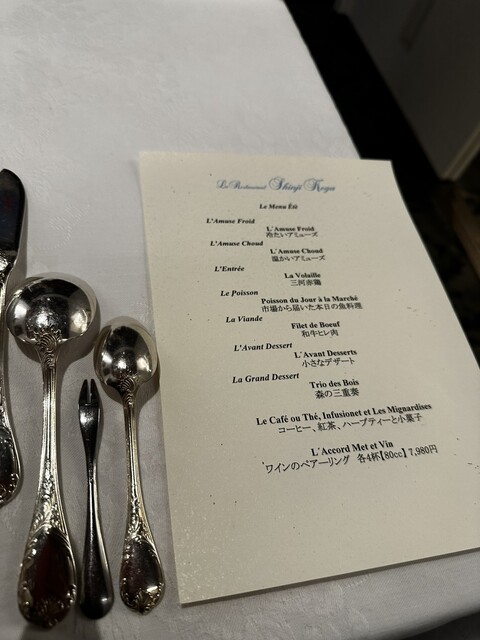 Le Restaurant Shinji Koga
Le Menu Été
L'Amuse Froid
L'Amuse Froid
冷たいアミューズ
L'Amuse Choud
L'Amuse Choud
温かいアミューズ
L'Entrée
La Volaille
三河赤鶏
Le Poisson
Poisson du Jour à la Marché
市場から届いた本日の魚料理
La Viande
Filet de Boeuf
和牛ヒレ肉
L'Avant Dessert
L'Avant Desserts
小さなデザート
La Grand Dessert
Trio des Bois
森の三重奏
Le Café ou Thé, Infusionet et Les Mignardises
コーヒー、紅茶、ハーブティーと小菓子
L'Accord Met et Vin
ワインのペアーリング 各4杯【80cc】 7,980円